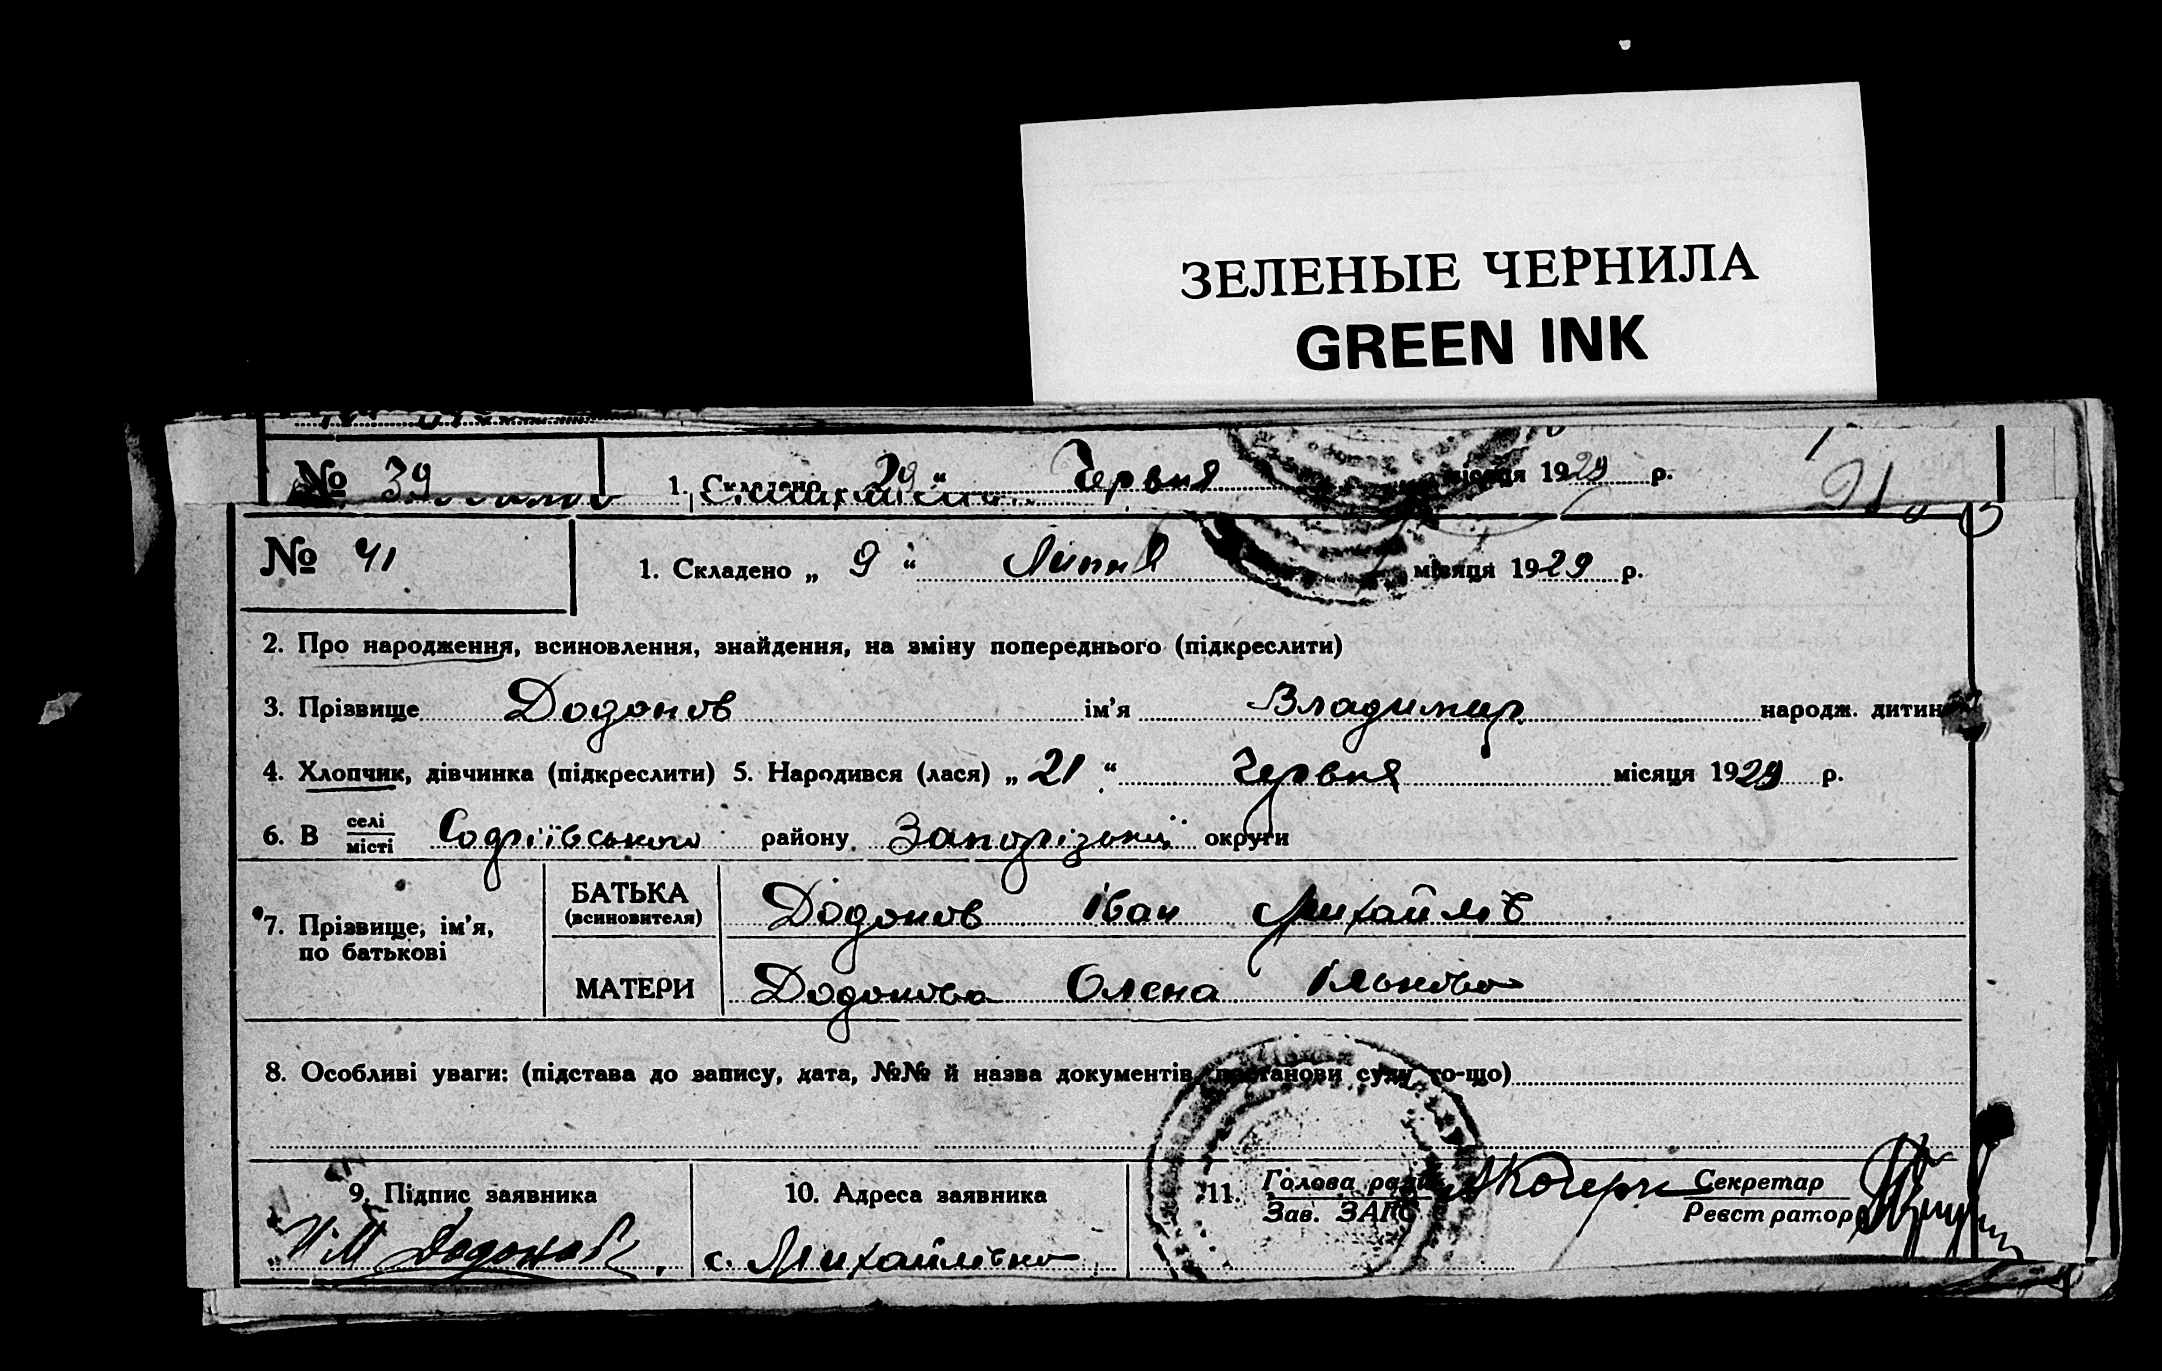 ЗЕЛЕНЫЕ ЧЕРНИЛА
GREEN INK
№ 39 1. Складено 29 " Червня місяця 1929 р.
№ 41 1. Складено „ 9 “ Липня місяця 1929 р.
2. Про народження, всиновлення, знайдення, на зміну попереднього (підкреслити)
3. Прізвище Додонов ім'я Владимир народж. дитини
4. Хлопчик, дівчинка (підкреслити) 5. Народився (лася) „ 21 “ Червня місяця 1929 р.
6. В селі місті Софіївського району Запорізької округи
7. Прізвище, ім'я, по батькові
БАТЬКА (всиновителя) Додонов Іван Михайлів
МАТЕРИ Додонова Олена Ількова
8. Особливі уваги: (підстава до запису, дата, №№ й назва документів, постанови суду то-що)
9. Підпис заявника 10. Адреса заявника 11. Голова ради Зав. ЗАГС Секретар Реєстратор
Додонов с. Михайлівка